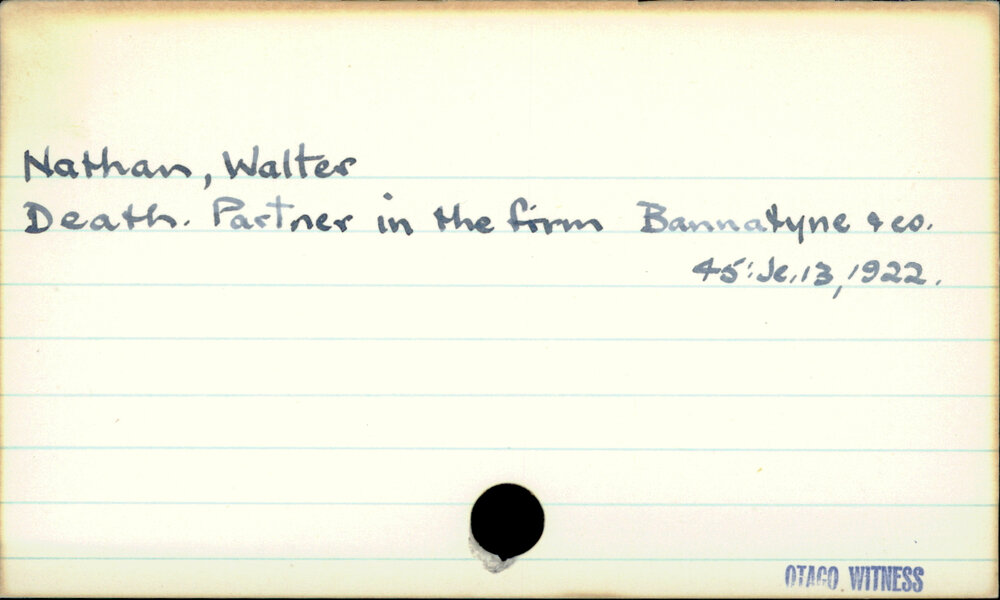 Nathan, Walter
Death. Partner in the firm Bannatyne & co.
45: Je. 13, 1922.
OTAGO WITNESS